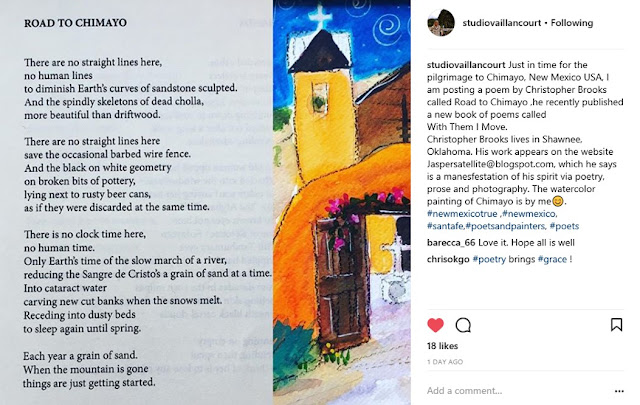 ROAD TO CHIMAYO
There are no straight lines here,
no human lines
to diminish Earth's curves of sandstone sculpted.
And the spindly skeletons of dead cholla,
more beautiful than driftwood.
There are no straight lines here
save the occasional barbed wire fence.
And the black on white geometry
on broken bits of pottery,
lying next to rusty beer cans,
as if they were discarded at the same time.
There is no clock time here,
no human time.
Only Earth's time of the slow march of a river,
reducing the Sangre de Cristo's a grain of sand at a time.
Into cataract water
carving new cut banks when the snows melt.
Receding into dusty beds
to sleep again until spring.
Each year a grain of sand.
When the mountain is gone
things are just getting started.
studiovaillancourt • Following
studiovaillancourt Just in time for the
pilgrimage to Chimayo, New Mexico USA, I
am posting a poem by Christopher Brooks
called Road to Chimayo ,he recently published
a new book of poems called
With Them I Move.
Christopher Brooks lives in Shawnee,
Oklahoma. His work appears on the website
Jaspersatellite@blogspot.com, which he says
is a manesfestation of his spirit via poetry,
prose and photography. The watercolor
painting of Chimayo is by me😊.
#newmexicotrue ,#newmexico,
#santafe,#poetsandpainters, #poets
barecca_66 Love it. Hope all is well
chrisokgo #poetry brings #grace !
18 likes
1 DAY AGO
Add a comment...